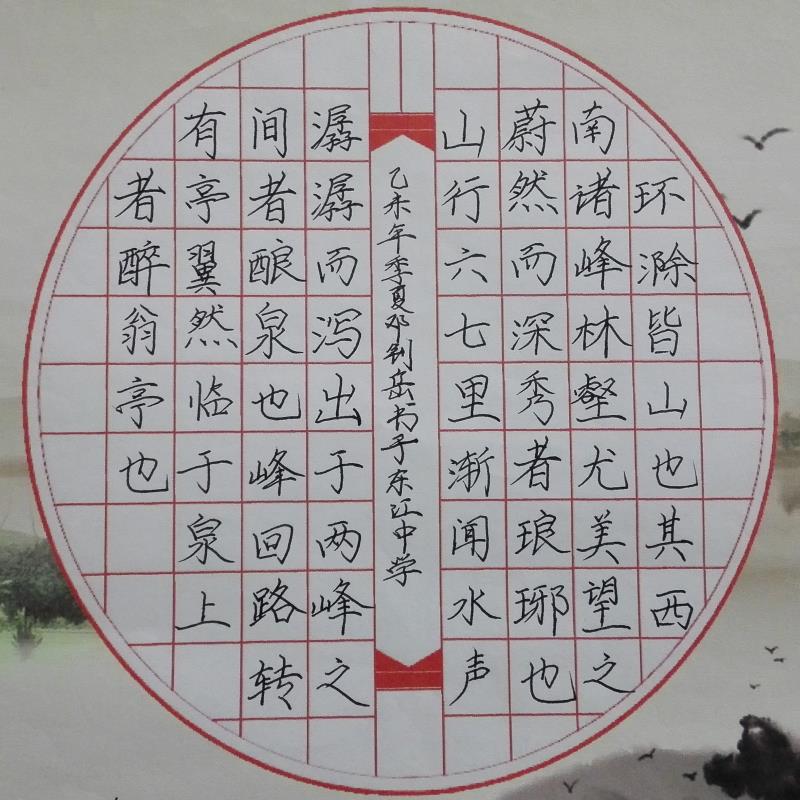 环滁皆山也其西
南诸峰林壑尤美望之
蔚然而深秀者琅琊也
山行六七里渐闻水声
乙未年季夏邓钊岳书于东江中学
潺潺而泻出于两峰之
间者酿泉也峰回路转
有亭翼然临于泉上
者醉翁亭也